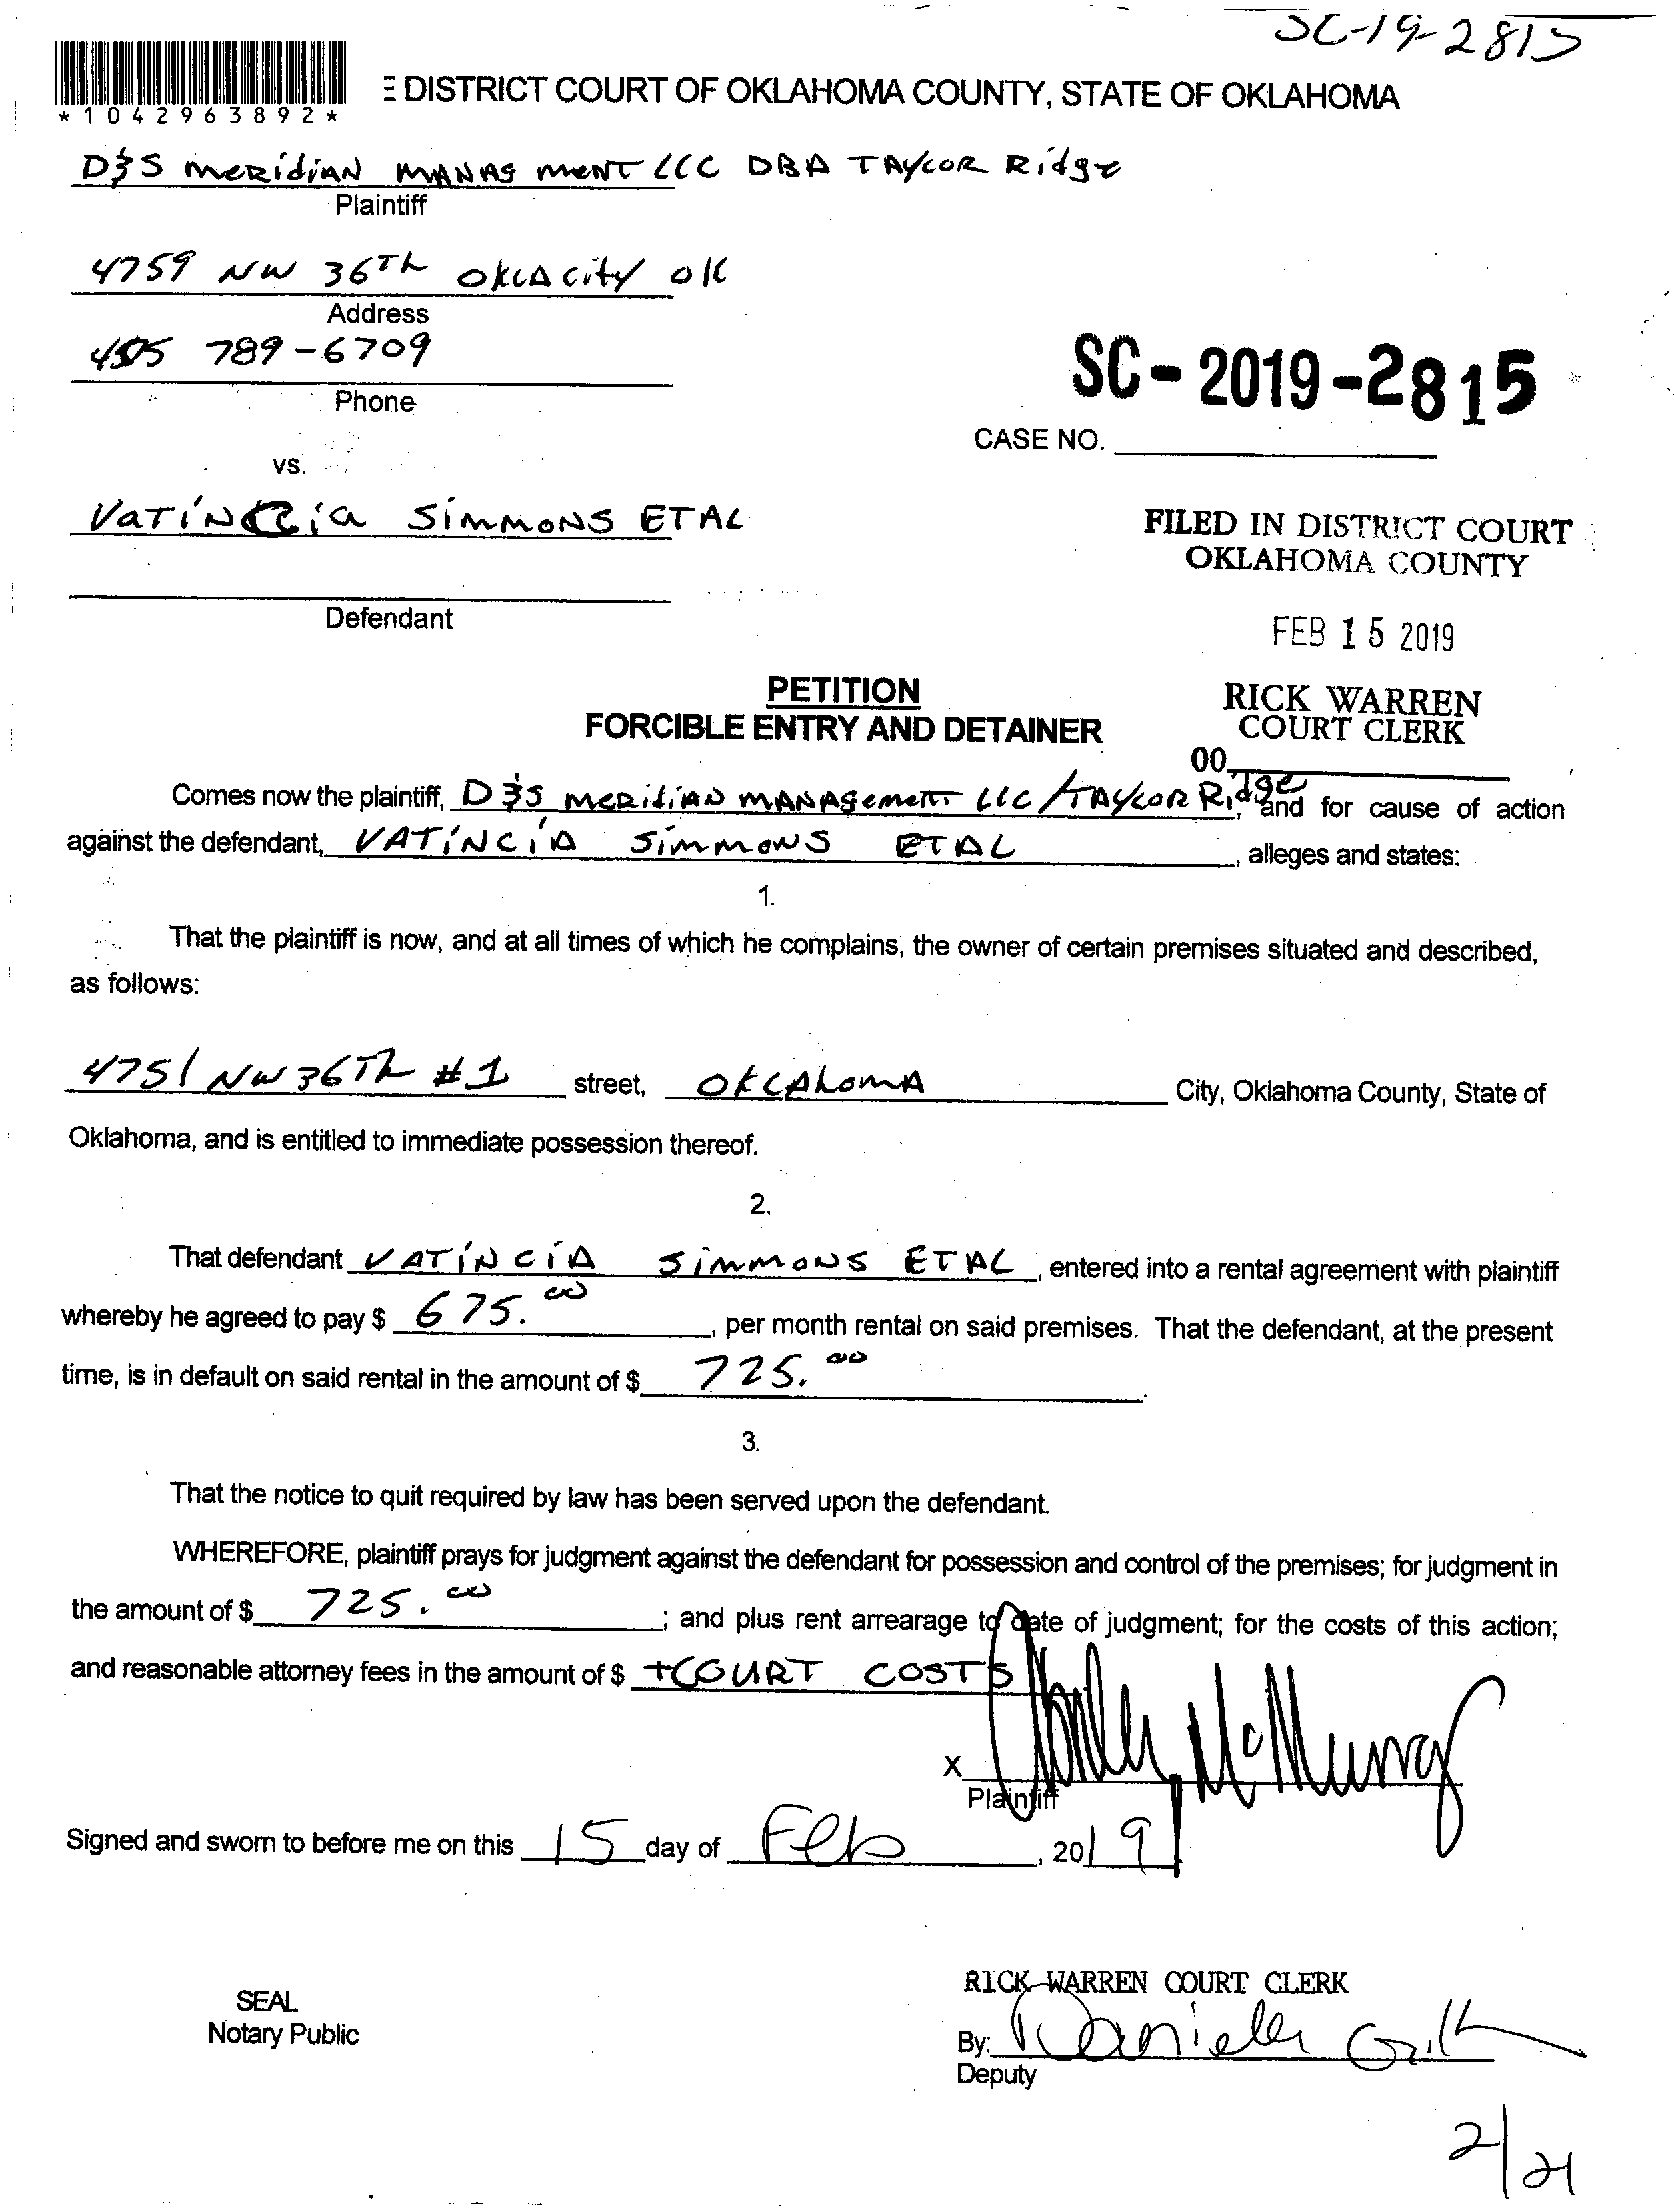 SC-19-2815
*1042963892*
E DISTRICT COURT OF OKLAHOMA COUNTY, STATE OF OKLAHOMA
D&S MERidiAN MANAG MENT LLC DBA TAYLOR Ridge
Plaintiff
4759 NW 36Th OKLA City OK
Address
405 789-6709
Phone
SC-2019-2815
CASE NO.
vs.
VATiNCia SiMMONS ETAL
FILED IN DISTRICT COURT
OKLAHOMA COUNTY
Defendant
FEB 15 2019
PETITION
RICK WARREN
FORCIBLE ENTRY AND DETAINER
COURT CLERK
00
Comes now the plaintiff, D&S MERidiAN MANAGEMENT LLC/TAYLOR Ridge, and for cause of action
against the defendant, VATiNCiA SiMMONS ETAL, alleges and states:
1.
That the plaintiff is now, and at all times of which he complains, the owner of certain premises situated and described,
as follows:
4751 NW 36Th #1 street, OKLAhoMA City, Oklahoma County, State of
Oklahoma, and is entitled to immediate possession thereof.
2.
That defendant VATiNCiA SiMMONS ETAL, entered into a rental agreement with plaintiff
whereby he agreed to pay $ 675.00, per month rental on said premises. That the defendant, at the present
time, is in default on said rental in the amount of $ 725.00.
3.
That the notice to quit required by law has been served upon the defendant.
WHEREFORE, plaintiff prays for judgment against the defendant for possession and control of the premises; for judgment in
the amount of $ 725.00; and plus rent arrearage to date of judgment; for the costs of this action;
and reasonable attorney fees in the amount of $ +COURT COSTS
X McMurray
Plaintiff
Signed and sworn to before me on this 15 day of Feb, 2019
RICK WARREN COURT CLERK
SEAL
Notary Public
By: Danielle
Deputy
2/21